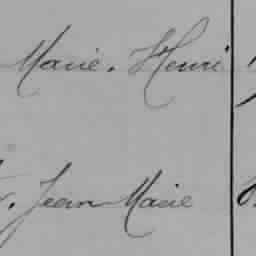 Marie. Henri
Jean Marie